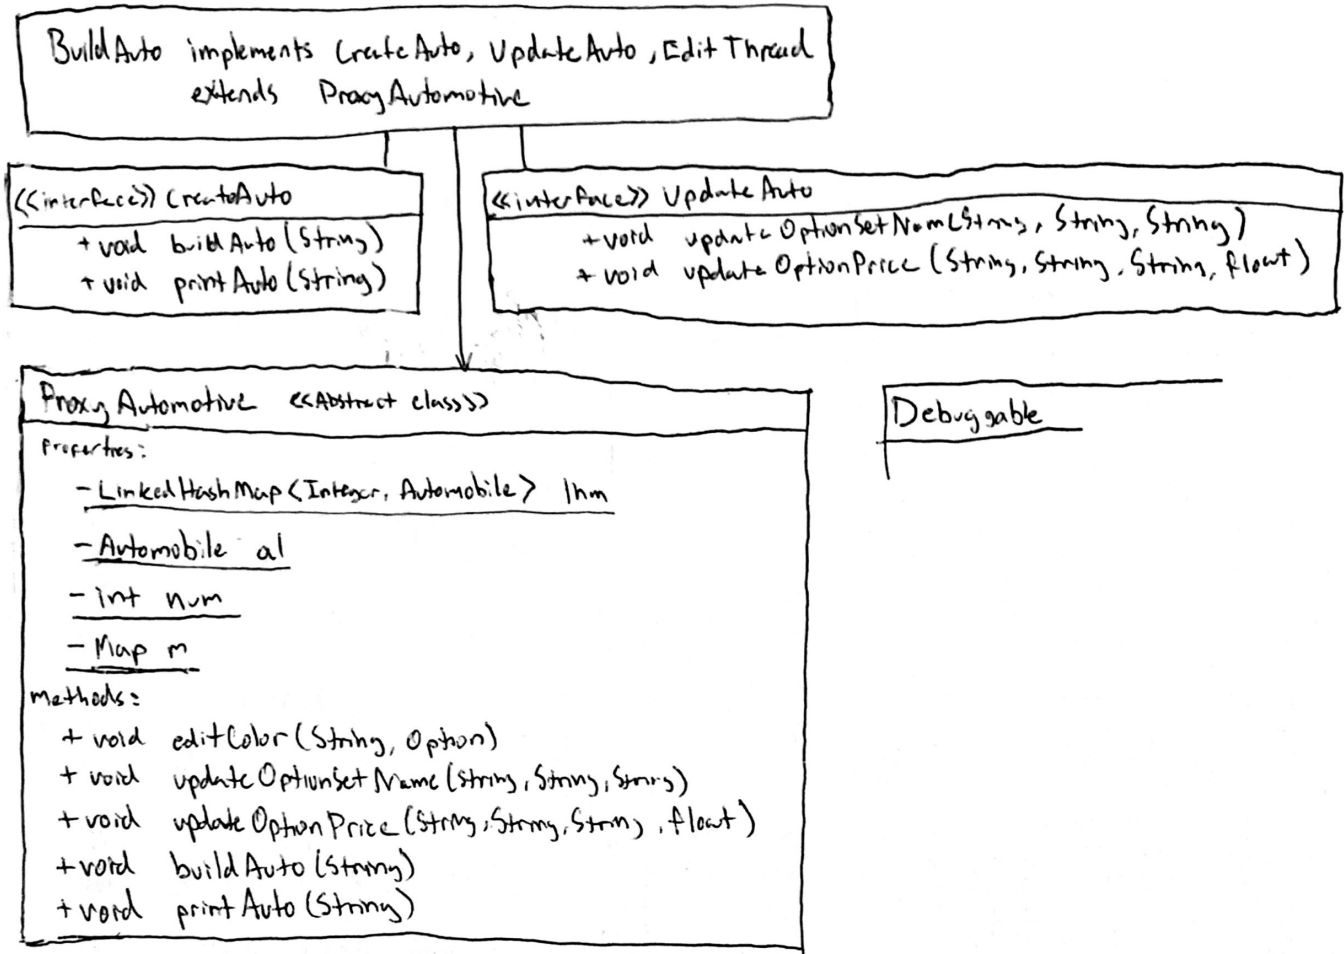 BuildAuto implements CreateAuto, UpdateAuto, EditThread
extends ProxyAutomotive
<<interface>> CreateAuto
+ void buildAuto(String)
+ void printAuto(String)
<<interface>> UpdateAuto
+ void updateOptionSetName(String, String, String)
+ void updateOptionPrice(String, String, String, float)
ProxyAutomotive <<Abstract class>>
Properties:
- LinkedHashMap<Integer, Automobile> lhm
- Automobile a1
- int num
- Map m
methods:
+ void editColor(String, Option)
+ void updateOptionSetName(String, String, String)
+ void updateOptionPrice(String, String, String, float)
+ void buildAuto(String)
+ void printAuto(String)
Debuggable